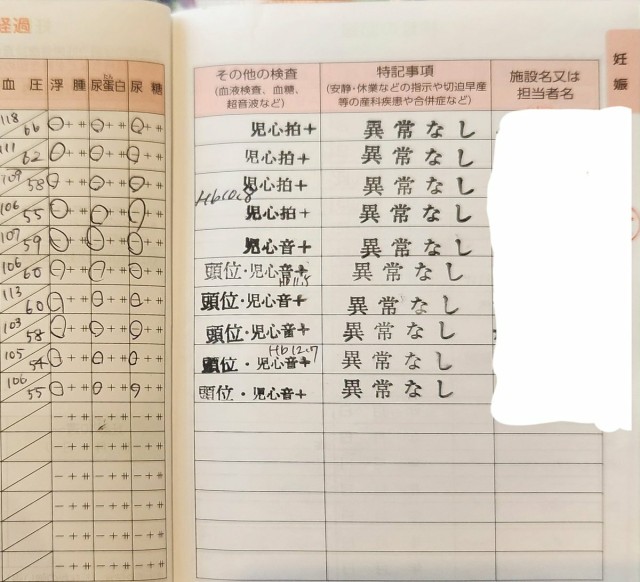 経過
血 圧 浮 腫 尿蛋白 尿 糖 その他の検査 (血液検査、血糖、超音波など) 特記事項 (安静・休業などの指示や切迫早産等の産科疾患や合併症など) 施設名又は担当者名
妊娠
118/66 - + ⧺ - + ⧺ - + ⧺ 児心拍+ 異常なし
111/62 - + ⧺ - + ⧺ - + ⧺ 児心拍+ 異常なし
109/58 - + ⧺ - + ⧺ - + ⧺ 児心拍+ 異常なし
106/55 - + ⧺ - + ⧺ - + ⧺ Hb10.8 児心拍+ 異常なし
107/59 - + ⧺ - + ⧺ - + ⧺ 児心音+ 異常なし
106/60 - + ⧺ - + ⧺ - + ⧺ 頭位・児心音+ Hb11.5 異常なし
113/60 - + ⧺ - + ⧺ - + ⧺ 頭位・児心音+ 異常なし
103/58 - + ⧺ - + ⧺ - + ⧺ 頭位・児心音+ 異常なし
105/54 - + ⧺ - + ⧺ - + ⧺ Hb12.7 頭位・児心音+ 異常なし
106/55 - + ⧺ - + ⧺ - + ⧺ 頭位・児心音+ 異常なし
- + ⧺ - + ⧺ - + ⧺
- + ⧺ - + ⧺ - + ⧺
- + ⧺ - + ⧺ - + ⧺
- + ⧺ - + ⧺ - + ⧺
- + ⧺ - + ⧺ - + ⧺
- + ⧺ - + ⧺ - + ⧺